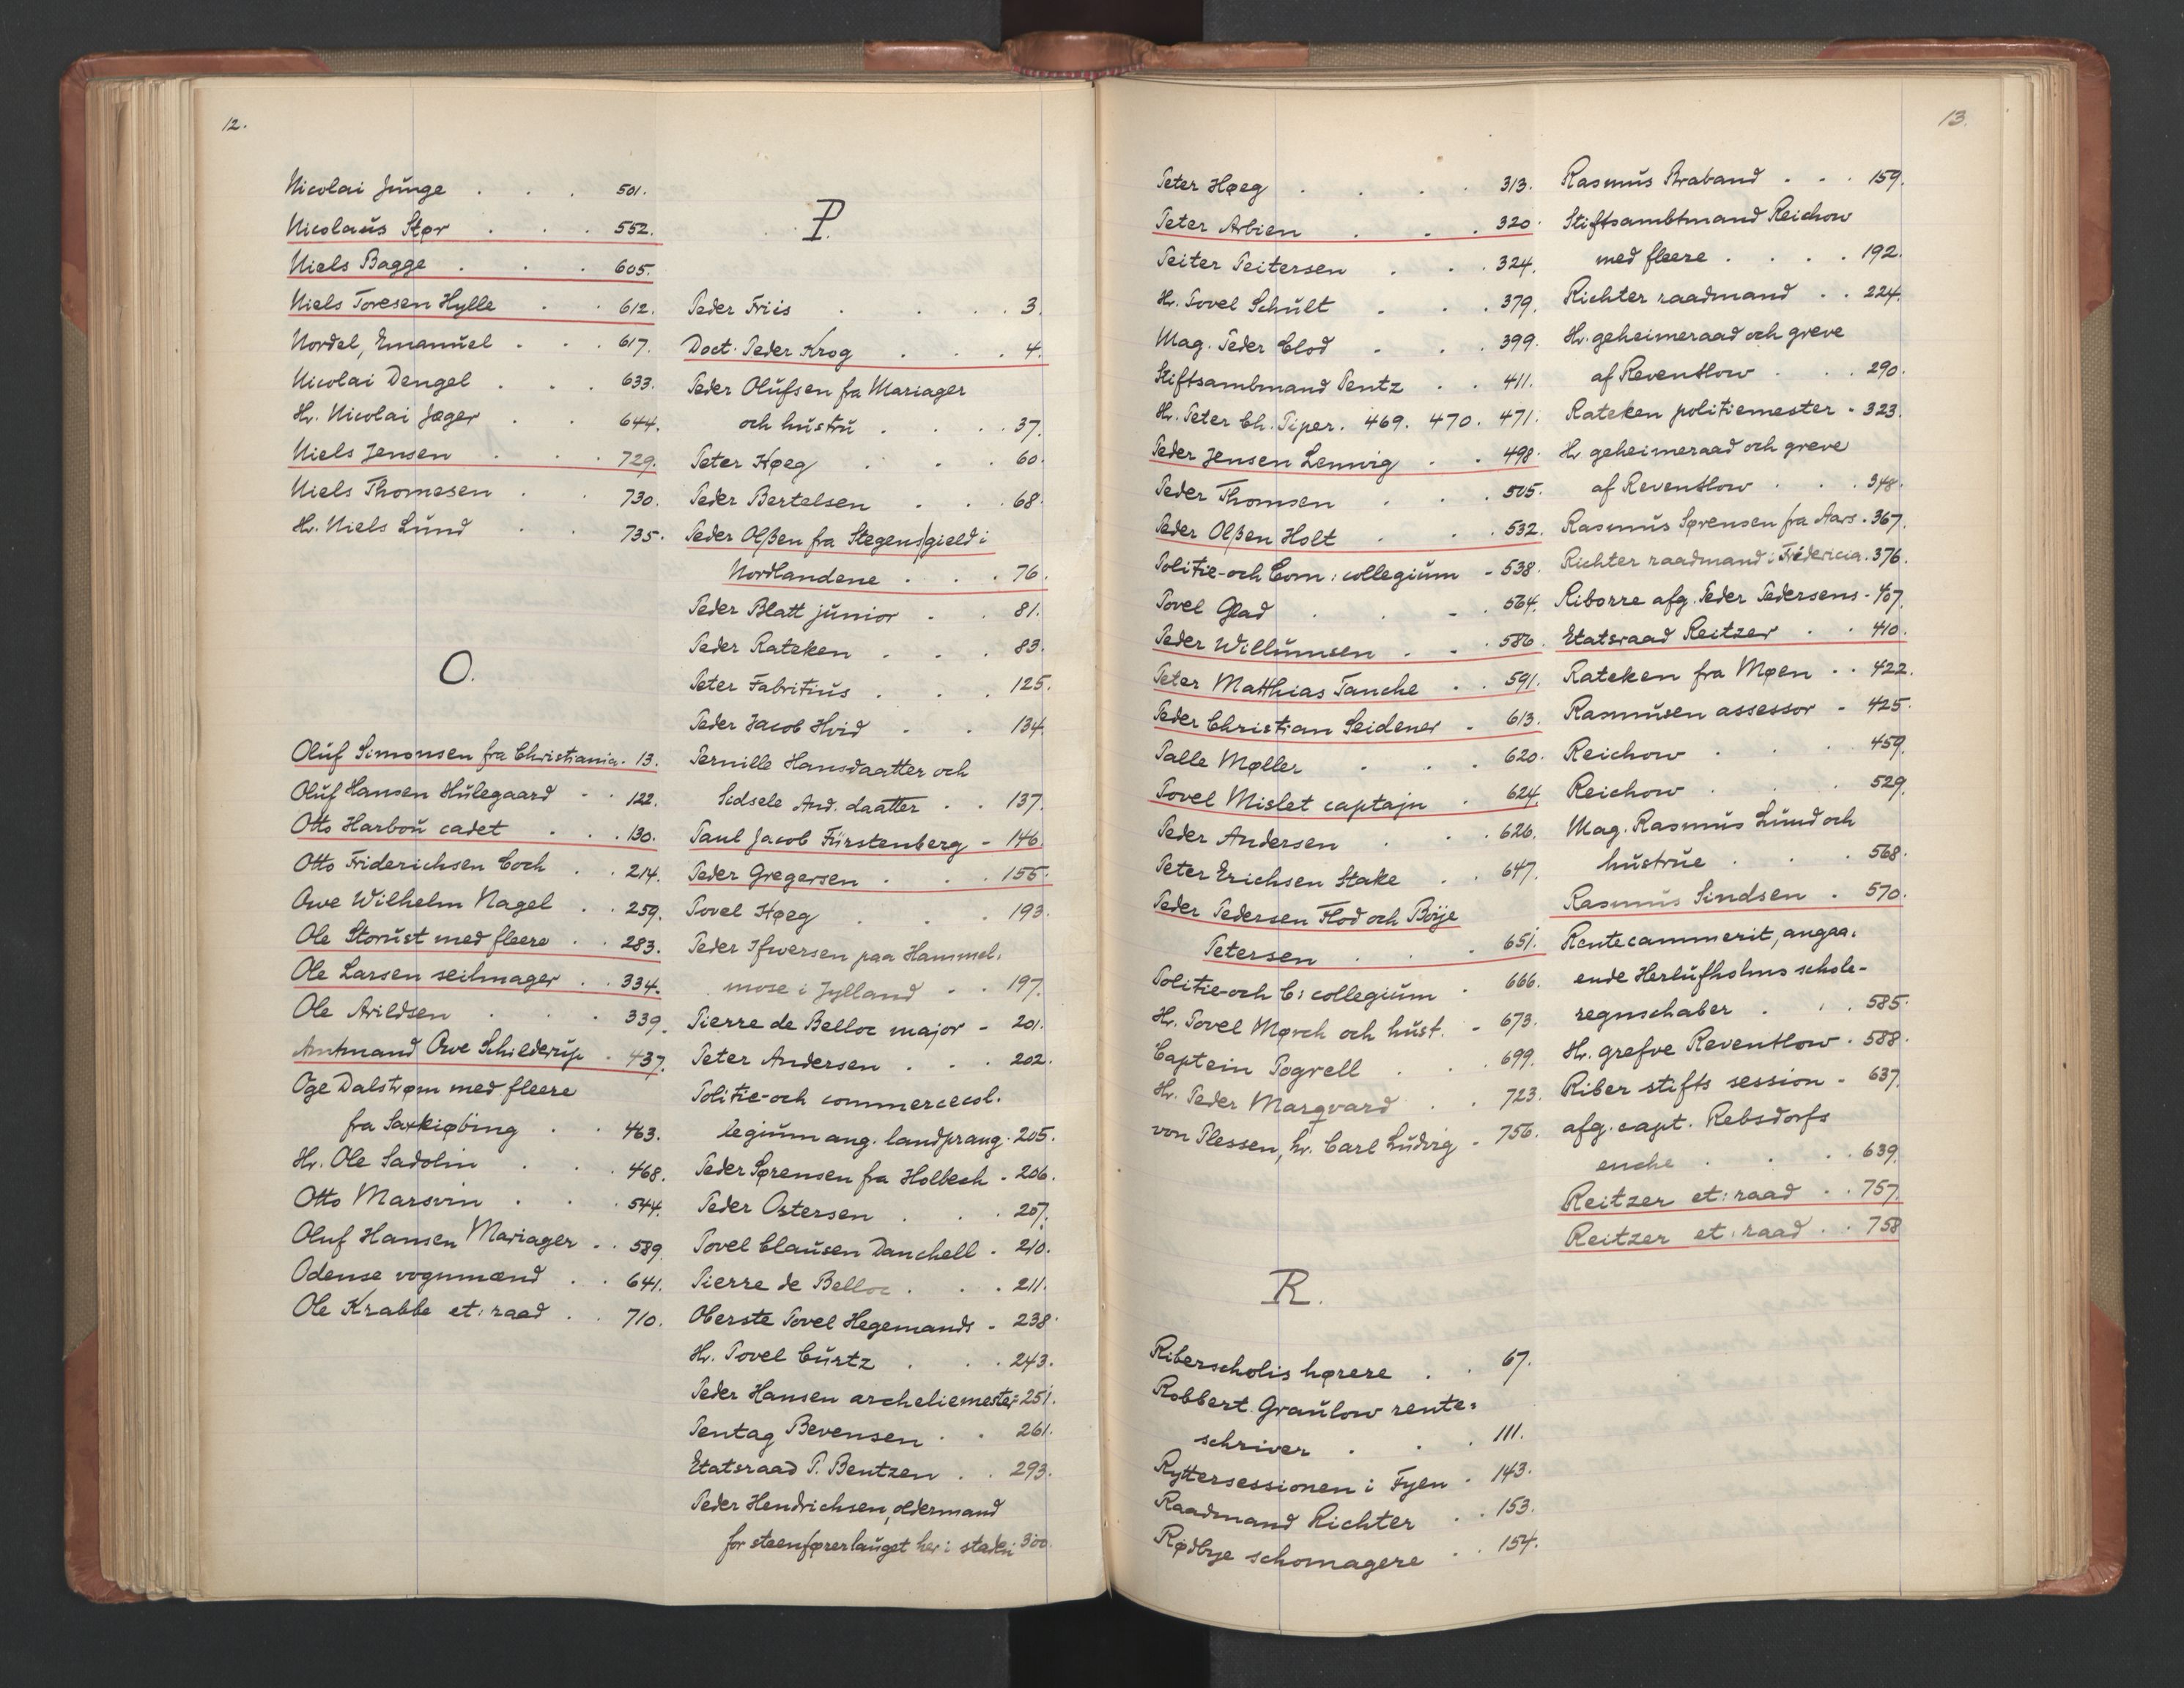 12.
Nicolai Junge . . . 501.
Nicolaus Stør . . . 552.
Niels Bagge . . . 605.
Niels Toresen Hylle . . 612.
Nordel, Emanuel . . . 617.
Nicolai Dengel . . . 633.
Hr. Nicolai Jæger . . 644.
Niels Jensen . . . 729.
Niels Thomesen . . 730.
Hr. Niels Lund . . 735.
O.
Oluf Simonsen fra Christiania . 13.
Oluf Hansen Hulegaard . . 122.
Otto Harbou cadet . . . 130.
Otto Friderichsen Coch . . 214.
Owe Wilhelm Nagel . . 259.
Ole Stoxust med fleere . . 283.
Ole Larsen seilmager . . 334.
Ole Arildsen . . . 339.
Amtmand Owe Schilderup . 437.
Oge Dalstrøm med fleere
fra Saxkiøbing . . 463.
Hr. Ole Sadolin . . . 468.
Otto Marsvin . . . 544.
Oluf Hansen Mariager . . 589.
Odense vognmænd . . 641.
Ole Krabbe et: raad . . 710.
P.
Peder Friis . . . . 3.
Doct. Peder Krog . . . 4.
Peder Olufsen fra Mariager
och hustru . . . . 37.
Peter Høeg . . . 60.
Peder Bertelsen . . . 68.
Peder Olßen fra Stegens gield i
Nordlandene . . . 76.
Peder Blatt junior . . 81.
Peder Rateken . . . 83.
Peter Fabritius . . . 125.
Peder Jacob Hvid . . 134.
Pernille Hansdaatter och
Sidsele And. daatter . . 137.
Paul Jacob Fürstenberg - 146.
Peder Gregersen . . . 155.
Povel Høeg . . . 193.
Peder Ifwersen paa Hammel-
mose i Jylland . . 197.
Pierre de Belloc major - 201.
Peter Andersen . . . 202.
Politie- och commercecol-
legium ang. landprang . 205.
Peder Sørensen fra Holbech . 206.
Peder Ostersen . . . 207.
Povel Clausen Danchell . 210.
Pierre de Belloc . . . 211.
Oberste Povel Hegemands . 238.
Hr. Povel Curtz . . . 243.
Peder Hansen archeliemester - 251.
Pentag Bevensen . . 261.
Etatsraad P. Bentzen . . 293.
Peder Hendrichsen, oldermand
for steenførerlauget her i staden 300.
13.
Peter Høeg . . . . 313.
Peter Arbien . . . 320.
Peiter Peitersen . . . 324.
Hr. Povel Schult . . . 379.
Mag. Peder Clod . . . 399.
Stiftsambmand Pentz . . 411.
Hr. Peter Ch. Piper. 469. 470. 471.
Peder Jensen Lemvig . . 498.
Peder Thomsen . . . 505.
Peder Olßen Holt . . . 532.
Politie- och Com: collegium - 538.
Povel Glad . . . . 564.
Peder Willumsen . . . 586.
Peter Matthias Tanche . . 591.
Peder Christian Seidener . 613.
Palle Møller . . . 620.
Povel Mislet captajn . 624.
Peder Andersen . . 626.
Peter Erichsen Stake . . 647.
Peder Pedersen Flod och Börje
Petersen . . . 651.
Politie- och C: collegium . 666.
Hr. Povel Mørch och hust. - 673.
Captein Pogrell . . . 699.
Hr. Peder Marqvard . . 723.
von Plessen, hr. Carl Ludvig - 756.
R.
Riberscholis hørere . . 67.
Robbert Graulow rente-
schriver . . . 111.
Ryttersessionen i Fyen . 143.
Raadmand Richter . . 153.
Rødbye schomagere . . 154.
Rasmus Braband . . . 159.
Stiftsambtmand Reichow
med fleere . . . . 192.
Richter raadmand . . 224.
Hr. geheimeraad och greve
af Reventlow . . . 290.
Rateken politiemester . 323.
Hr. geheimeraad och greve
af Reventlow . . . 348.
Rasmus Sørensen fra Aars . 367.
Richter raadmand i Fridericia . 376.
Riborre afg. Peder Pedersens - 407.
Etatsraad Reitzer . . 410.
Rateken fra Møen . . 422.
Rasmusen assessor . 425.
Reichow . . . 459.
Reichow . . . 529.
Mag. Rasmus Lund och
hustrue . . . 568.
Rasmus Sindsen . 570.
Rentecammerit, angaa-
ende Herlufholms schole-
regnschaber . . . 585.
Hr. grefve Reventlow . 588.
Riber stifts session . 637.
afg. capt. Rebsdorfs
enche . . . . 639.
Reitzer et: raad . . 757.
Reitzer et: raad . . 758